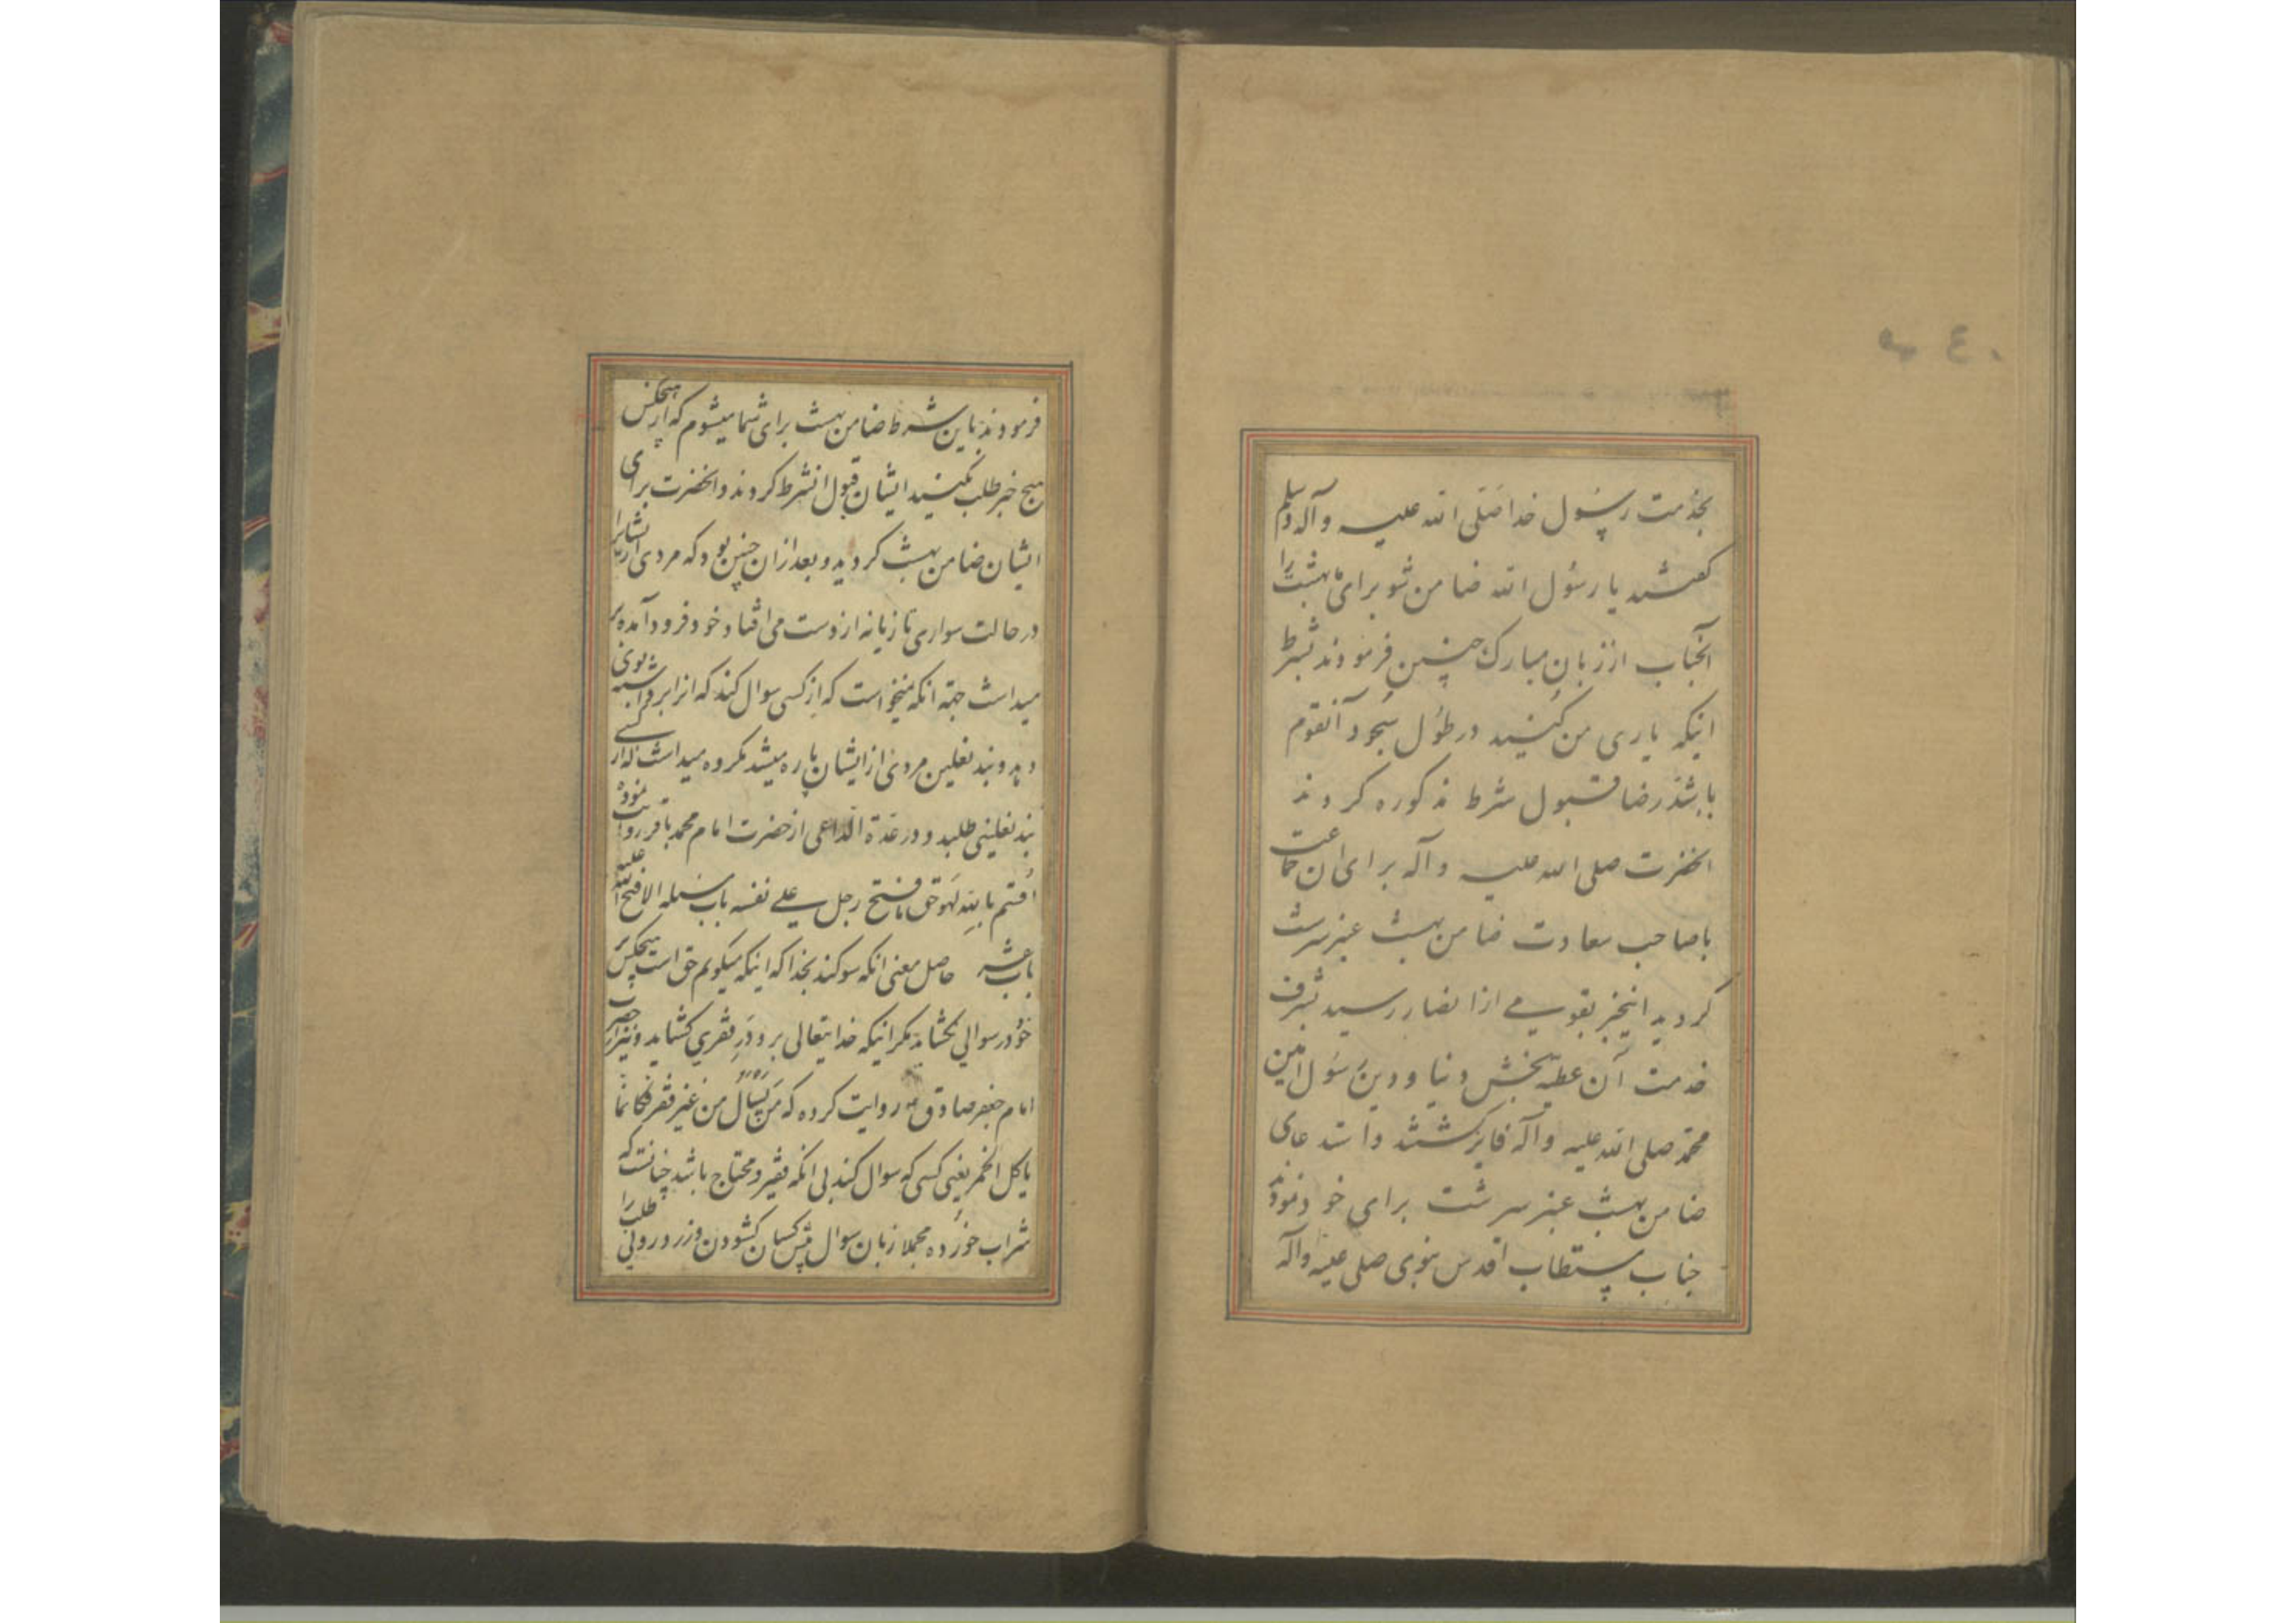 بخدمت رسول خدا صلی الله علیه وآله وسلم
گفتند یا رسول الله ضامن شو برای ما بهشت را
آنجناب از زبان مبارک چنین فرمودند بشرط
اینکه یاری من کنید در طول سجود آنقوم
باشد رضا قبول شرط مذکوره کردند
انحضرت صلی الله علیه وآله برای ان جماعت
باصاحب سعادت ضامن بهشت عنبر سرشت
کردید
خدمت آن عطیه بخش دنیا و دین رسول امین
محمد صلی الله علیه وآله فایز کشتند
ضامن بهشت عنبر سرشت برای خود نمودند
جناب مستطاب اقدس نبوی صلی علیه وآله
فرمودند باین شرط ضامن بهشت برای شما میشوم که از هیچکس
هیچ خبر طلب نکنید ایشان قبول انشرط کردند و انحضرت برای
ایشان ضامن بهشت کردید و بعد از ان چنین بود که مردی از ایشانرا
در حالت سواری تازیانه از دست می افتاد خود فرود آمده بر
میداشت جهة انکه نمیخواست که از کسی سوال کند که انرا برداشته بوی
دهد و بند نعلین مردی از ایشان پاره میشد مکروه میداشت که از کسی
بند نعلینی طلبد و در عدة الداعی از حضرت امام محمد باقر روایت نموده
اقسم بالله لهو حق ما فتح رجل علی نفسه باب مسئله الا فتح الله علیه
باب حاصل معنی انکه سوکند بخدا که اینکه میکویم حق است هیچکس بر
خود در سوالی نکشاید مکر اینکه خدایتعالی برو در فقری کشاید و نیز از حضرت
امام جعفر صادق روایت کرده که من یسال من غیر فقر فکانما
یاکل الخمر یعنی کسی که سوال کند بی انکه فقیر و محتاج باشد چنانست که
شراب خورده مجملا زبان سوال پیش کسان کشودن